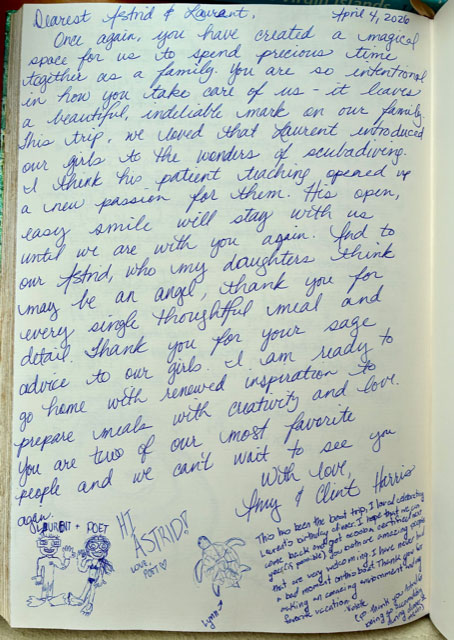 Dearest Astrid & Laurant,
April 4, 2026
Once again, you have created a magical
space for us to spend precious time
together as a family. You are so intentional
in how you take care of us - it leaves
a beautiful, indelible mark on our family.
This trip, we loved that Laurent introduced
our girls to the wonders of scubadiving.
I think his patient teaching opened up
a new passion for them. His open,
easy smile will stay with us
until we are with you again. And to
our Astrid, who my daughters think
may be an angel, thank you for
every single thoughtful meal and
detail. Thank you for your sage
advice to our girls. I am ready to
go home with renewed inspiration to
prepare meals with creativity and love.
You are two of our most favorite
people and we can't wait to see you
again.
With love,
Amy & Clint Harris
LAURENT + POET
HI
ASTRID!
LOVE,
POET ♡
This has been the best trip, I loved celebrating
Laurent's birthday dinner. I hope that we can
come back and get scuba certified next
year (if possible) you both are amazing people
that are very welcoming. I have never had
a bad moment on this boat. Thank you for
making an amazing environment and my
favorite vacation.
(p.s. thank you
being so
during